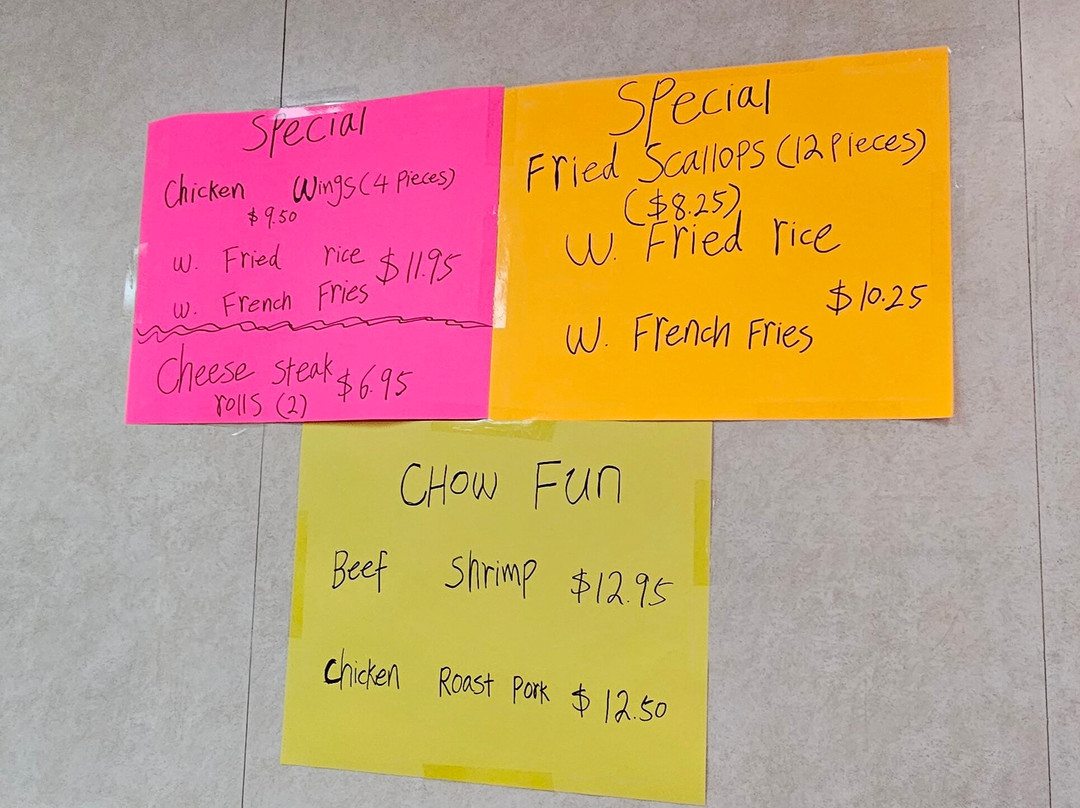 Special
Chicken Wings (4 Pieces)
$9.50
w. Fried rice $11.95
w. French Fries
Cheese steak $6.95
rolls (2)
Special
Fried Scallops (12 Pieces)
($8.25)
W. Fried rice
$10.25
W. French Fries
CHOW FUN
Beef Shrimp $12.95
Chicken Roast Pork $12.50